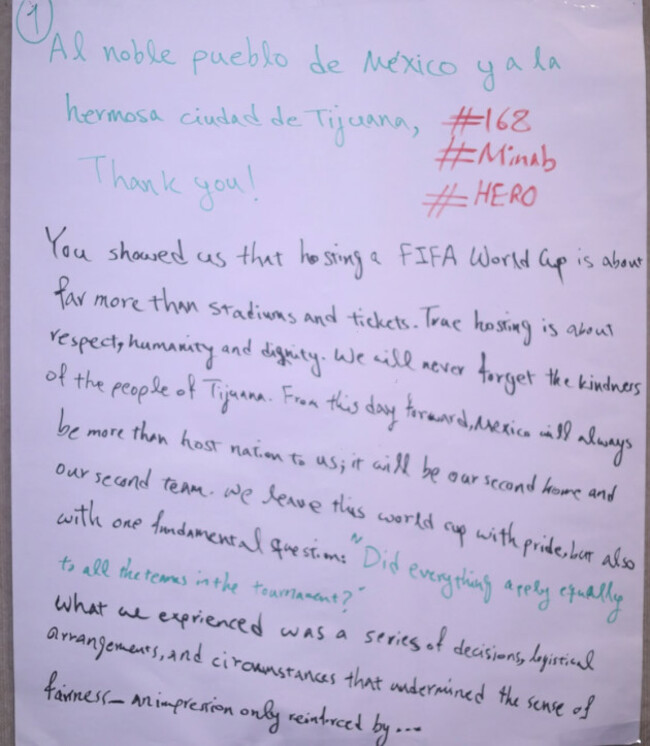 1
Al noble pueblo de México y a la
hermosa ciudad de Tijuana,
#168
#Minab
#HERO
Thank you!
You showed us that hosting a FIFA World Cup is about
far more than stadiums and tickets. True hosting is about
respect, humanity and dignity. We will never forget the kindness
of the people of Tijuana. From this day forward, Mexico will always
be more than host nation to us; it will be our second home and
our second team. We leave this world cup with pride, but also
with one fundamental question: "Did everything apply equally
to all the teams in the tournament?"
What we exprienced was a series of decisions, logistical
arrangements, and circumstances that undermined the sense of
fairness_ an impression only reinforced by...